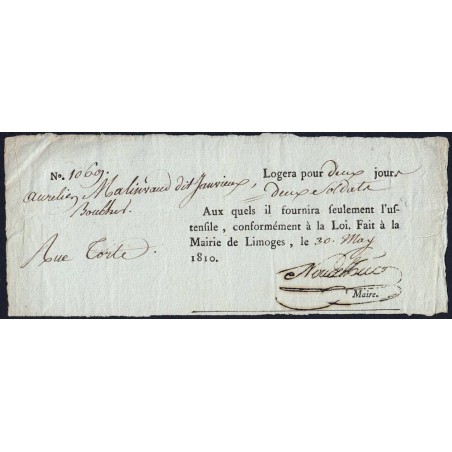 No. 1069. Logera pour deux jours
aurelien Malinvaud dit Janvieux, deux soldats
Boucher. Aux quels il fournira seulement l'us-
tensile, conformément à la Loi. Fait à la
Rue Torte Mairie de Limoges, le 30. May
1810.
Maire.